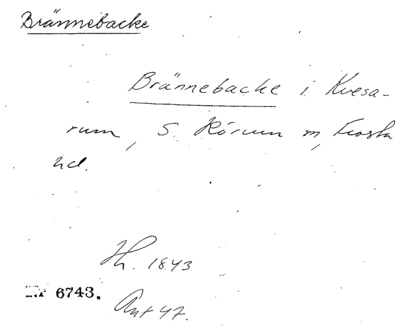 Brännebacke
Brännebacke i Kvesa-
rum, S. Rörum sn, Frosta
hd.
Hh. 1843
Nr 6743.
Ant 47.